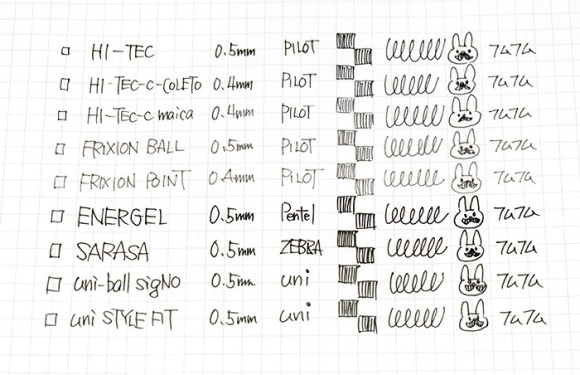 HI-TEC 0.5mm PILOT フムフム
HI-TEC-C-COLETO 0.4mm PILOT フムフム
HI-TEC-C maica 0.4mm PILOT フムフム
FRIXION BALL 0.5mm PILOT フムフム
FRIXION POINT 0.4mm PILOT フムフム
ENERGEL 0.5mm Pentel フムフム
SARASA 0.5mm ZEBRA フムフム
uni-ball sigNO 0.5mm uni フムフム
uni STYLE FIT 0.5mm uni フムフム